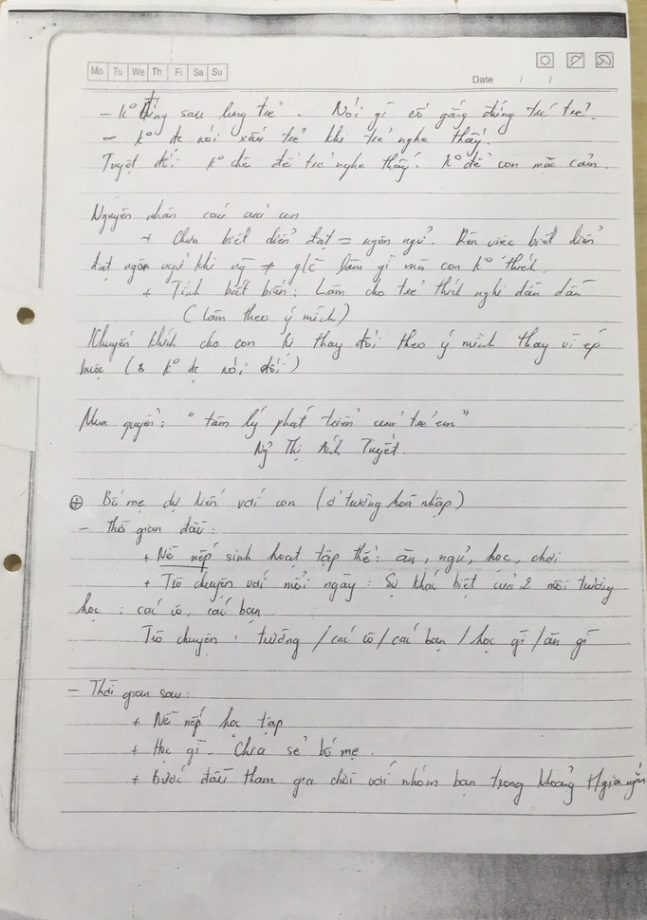 Mo Tu We Th Fi Sa Su
Date / /
- k° đứng sau lưng trẻ. Nói gì cố gắng đứng trc trẻ.
- k° đc nói xấu trẻ khi trẻ nghe thấy.
Tuyệt đối k° để trẻ nghe thấy. k° để con mặc cảm.
Nguyên nhân cáu của con
+ Chưa biết diễn đạt = ngôn ngữ. Rèn việc biết diễn
đạt ngôn ngữ khi làm gì mà con k° thích.
+ Tính bất biến: Làm cho trẻ thích nghi dần dần
(làm theo ý mình)
Khuyến khích cho con thay đổi theo ý mình thay vì ép
buộc (k° đc nói dối)
Mua quyển: "tâm lý phát triển của trẻ em"
Ng~ Thị Ánh Tuyết.
⊕ Bố mẹ dự kiến với con (ở trường hoà nhập)
- Thời gian đầu:
+ Nề nếp sinh hoạt tập thể: ăn, ngủ, học, chơi
+ Trò chuyện với mỗi ngày: Sự khác biệt của 2 môi trường
học: các cô, các bạn
Trò chuyện: trường / các cô / các bạn / học gì / ăn gì
- Thời gian sau:
+ Nề nếp học tập
+ Học gì - Chia sẻ bố mẹ.
+ Bước đầu tham gia chơi với nhóm bạn trong khoảng t/gian ngắn